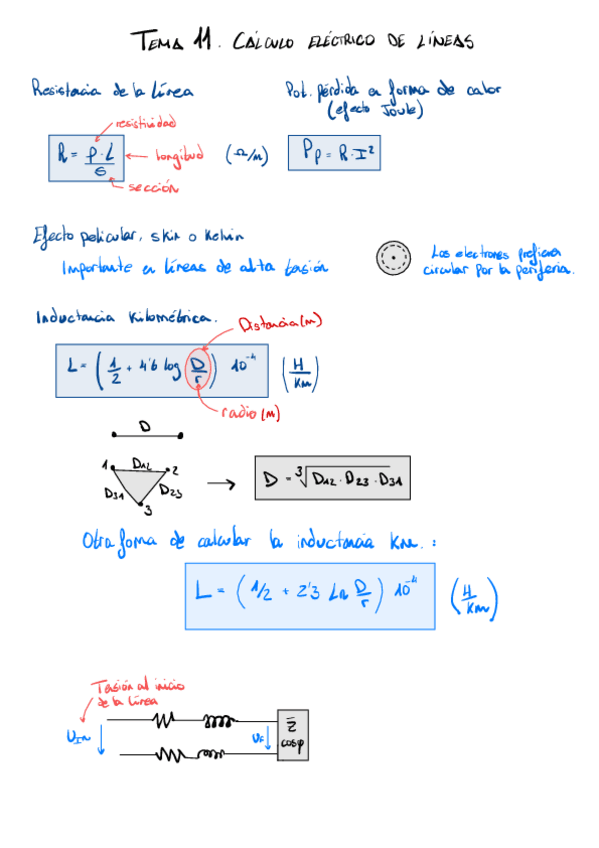 TEMA 11. CÁLCULO ELÉCTRICO DE LÍNEAS
Resistencia de la línea
Pot. pérdida en forma de calor
(efecto Joule)
resistividad
R = ρ·L / S
longitud
(Ω/m)
sección
Pp = R·I²
Efecto pelicular, skin o Kelvin
Importante en líneas de alta tensión
Los electrones prefieren
circular por la periferia.
Inductancia Kilométrica.
Distancia (m)
L = (1/2 + 4'6 log D/r) 10⁻⁴ (H/Km)
radio (m)
D
1 D12 2
D31 D23
3
D = ³√D12·D23·D31
Otra forma de calcular la inductancia Km. :
L = (1/2 + 2'3 Ln D/r) 10⁻⁴ (H/Km)
Tensión al inicio
de la línea
UIn
UF
Z̄
cosφ